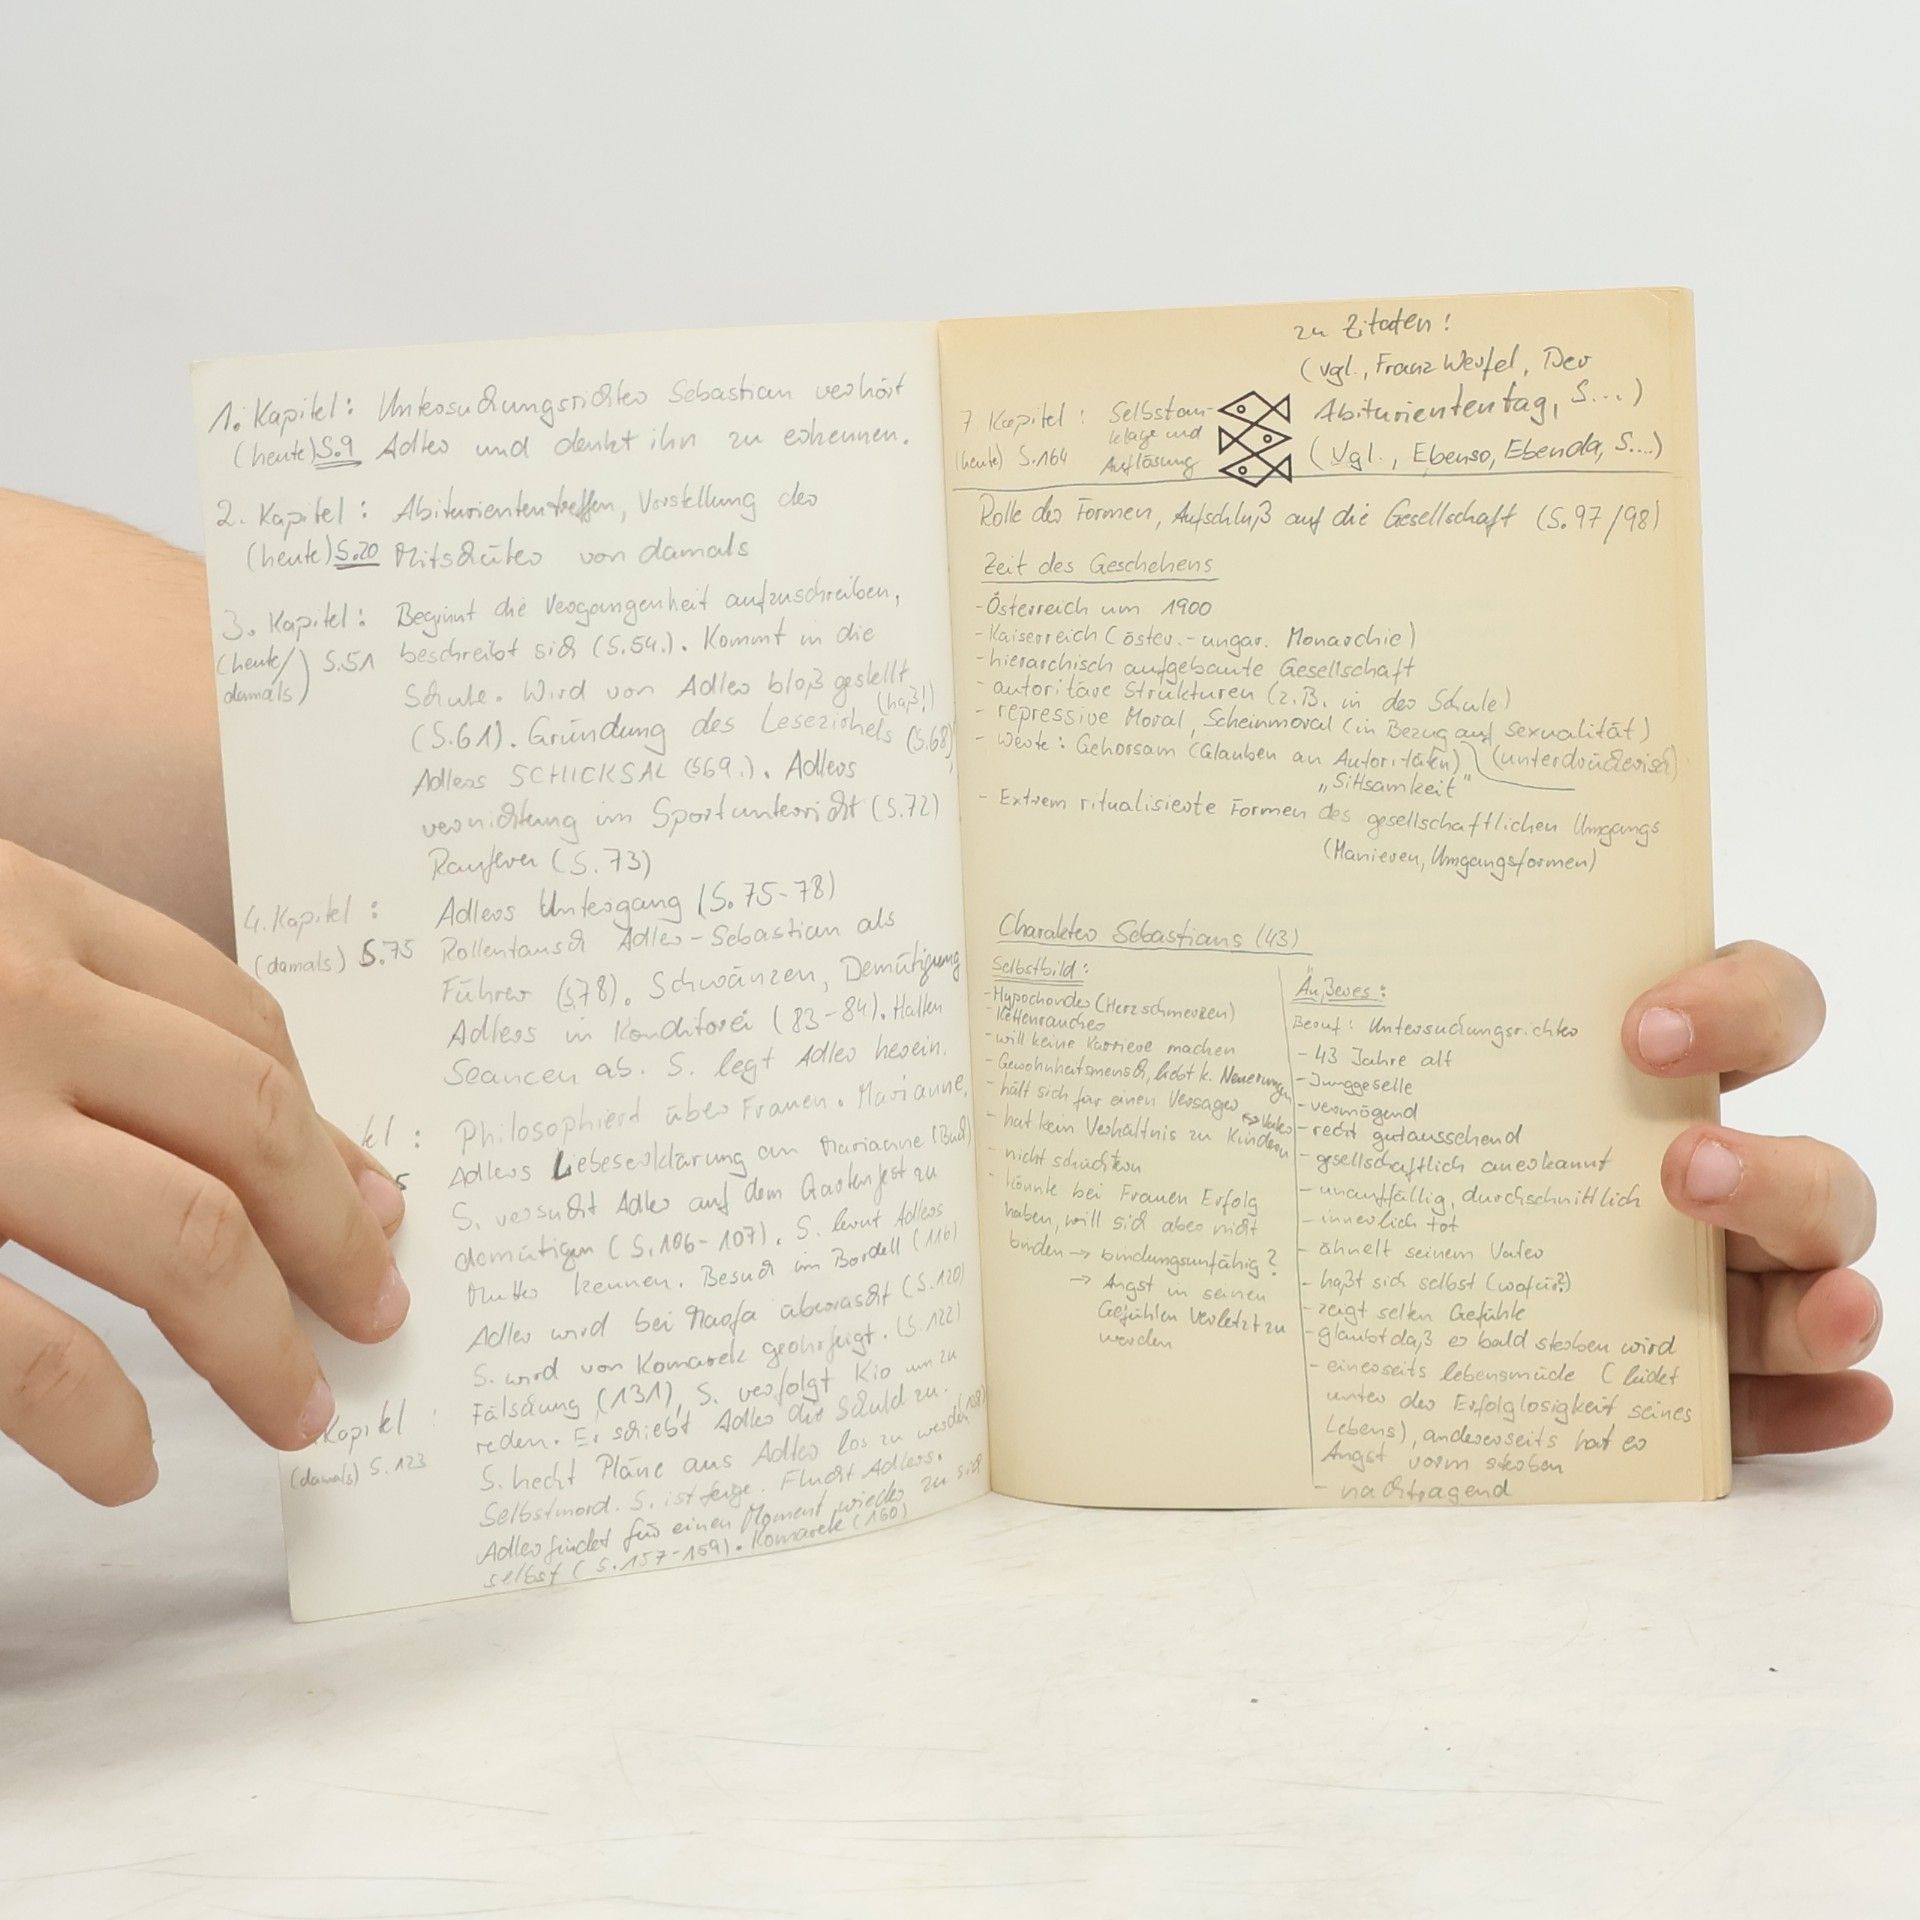 1. Kapitel: Untersuchungsrichter Sebastian verhört
(heute) S.9 Adler und denkt ihn zu erkennen.
2. Kapitel: Abituriententreffen, Vorstellung der
(heute) S.20 Mitschüler von damals
3. Kapitel: Beginnt die Vergangenheit aufzuschreiben,
(heute/damals) S.51 beschreibt sich (S.54.). Kommt in die
Schule. Wird von Adler bloß gestellt
(haß!)
(S.61). Gründung des Lesezirkels (S.68),
Adlers SCHICKSAL (S69.). Adlers
vernichtung im Sportunterricht (S.72)
Rauferei (S.73)
4. Kapitel: Adlers Untergang (S.75-78)
(damals) S.75 Rollentausch Adler-Sebastian als
Führer (S.78). Schwänzen, Demütigung
Adlers in Konditorei (83-84). Halten
Seancen ab. S. legt Adler herein.
kel: Philosophiert über Frauen. Marianne.
5 Adlers Liebeserklärung an Marianne (Buch)
S. versucht Adler auf dem Gartenfest zu
demütigen (S.106-107). S. lernt Adlers
Mutter kennen. Besuch im Bordell (116)
Adler wird bei überrascht (S.120)
S. wird von Komarek geohrfeigt. (S.122)
Kapitel: Fälschung (131), S. verfolgt Kio um zu
(damals) S.123 reden. Er schiebt Adler die Schuld zu.
S. heckt Pläne aus Adler los zu werden
Selbstmord. S. ist feige. Flucht Adlers.
Adler findet für einen Moment wieder zu sich
selbst (S.157-159). Komarek (160)
zu Zitaten!
(vgl., Franz Werfel, Der
Abituriententag, S...)
(Vgl., Ebenso, Ebenda, S....)
7 Kapitel: Selbstan-
klage und
(heute) S.164 Auflösung
Rolle der Formen, Aufschluß auf die Gesellschaft (S.97/98)
Zeit des Geschehens
- Österreich um 1900
- Kaiserreich (öster.-ungar. Monarchie)
- hierarchisch aufgebaute Gesellschaft
- autoritäre Strukturen (z.B. in der Schule)
- repressive Moral, Scheinmoral (in Bezug auf Sexualität)
(unterdrückerisch)
- Werte: Gehorsam (Glauben an Autoritäten)
"Sittsamkeit"
- Extrem ritualisierte Formen des gesellschaftlichen Umgangs
(Manieren, Umgangsformen)
Charakter Sebastians (43)
Selbstbild:
- Hypochonder (Herzschmerzen)
- Kettenraucher
- will keine Karriere machen
- Gewohnheitsmensch, liebt k. Neuerungen
- hält sich für einen Versager ↔ Vater
- hat kein Verhältnis zu Kindern
- nicht schüchtern
- könnte bei Frauen Erfolg
haben, will sich aber nicht
binden → bindungsunfähig?
→ Angst in seinen
Gefühlen verletzt zu
werden
Äußeres:
Beruf: Untersuchungsrichter
- 43 Jahre alt
- Junggeselle
- vermögend
- recht gutaussehend
- gesellschaftlich anerkannt
- unauffällig, durchschnittlich
- innerlich tot
- ähnelt seinem Vater
- haßt sich selbst (wofür?)
- zeigt selten Gefühle
- glaubt daß er bald sterben wird
- einerseits lebensmüde (leidet
unter der Erfolglosigkeit seines
Lebens), andererseits hat er
Angst vorm sterben
- nachtragend